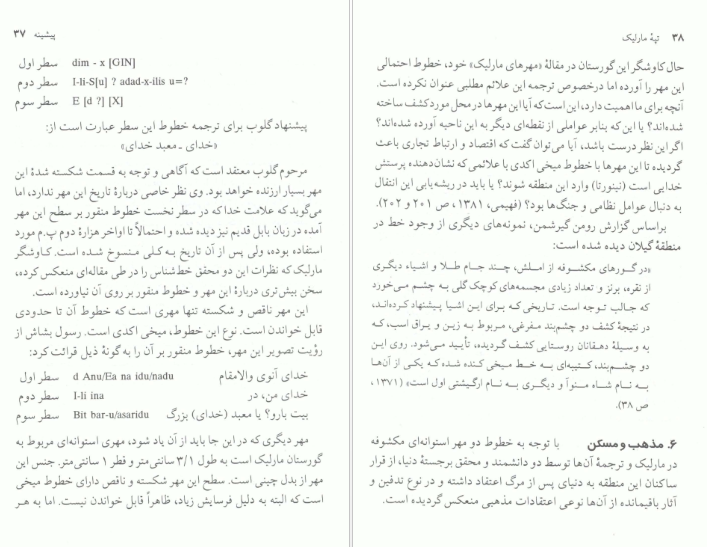 پیشینه ۳۷
سطر اول dim - x [GIN]
سطر دوم I-li-S[u] ? adad-x-ilis u=?
سطر سوم E [d ?] [X]
پیشنهاد گلوب برای ترجمه خطوط این سطر عبارت است از:
«خدای ـ معبد خدای»
مرحوم گلوب معتقد است که آگاهی و توجه به قسمت شکسته شدهٔ این
مهر بسیار ارزنده خواهد بود. وی نظر خاصی دربارهٔ تاریخ این مهر ندارد، اما
می‌گوید که علامت خدا که در سطر نخست خطوط منقور بر سطح این مهر
آمده در زبان بابل قدیم نیز دیده شده و احتمالاً تا اواخر هزارهٔ دوم پ.م مورد
استفاده بوده، ولی پس از آن تاریخ به کلی منسوخ شده است. کاوشگر
مارلیک که نظرات این دو محقق خط‌شناس را در طی مقاله‌ای منعکس کرده،
سخن بیش‌تری دربارهٔ این مهر و خطوط منقور بر روی آن نیاورده است.
این مهر ناقص و شکسته تنها مهری است که خطوط آن تا حدودی
قابل خواندن است. نوع این خطوط، میخی اکدی است. رسول بشاش از
رؤیت تصویر این مهر، خطوط منقور بر آن را به گونهٔ ذیل قرائت کرد:
سطر اول d Anu/Ea na idu/nadu خدای آنوی والامقام
سطر دوم I-li ina خدای من، در
سطر سوم Bit bar-u/asaridu بیت بارو؟ یا معبد (خدای) بزرگ
مهر دیگری که در این جا باید از آن یاد شود، مهری استوانه‌ای مربوط به
گورستان مارلیک است به طول ۳/۱ سانتی‌متر و قطر ۱ سانتی‌متر. جنس این
مهر از بدل چینی است. سطح این مهر شکسته و ناقص دارای خطوط میخی
است که البته به دلیل فرسایش زیاد، ظاهراً قابل خواندن نیست. اما به هر
۳۸ تپهٔ مارلیک
حال کاوشگر این گورستان در مقالهٔ «مهرهای مارلیک» خود، خطوط احتمالی
این مهر را آورده اما درخصوص ترجمه این علائم مطلبی عنوان نکرده است.
آنچه برای ما اهمیت دارد، این است که آیا این مهرها در محل مورد کشف ساخته
شده‌اند؟ یا این که بنابر عواملی از نقطه‌ای دیگر به این ناحیه آورده شده‌اند؟
اگر این نظر درست باشد، آیا می‌توان گفت که اقتصاد و ارتباط تجاری باعث
گردیده تا این مهرها با خطوط میخی اکدی با علائمی که نشان‌دهنده پرستش
خدایی است (نینورتا) وارد این منطقه شوند؟ یا باید در ریشه‌یابی این انتقال
به دنبال عوامل نظامی و جنگ‌ها بود؟ (فهیمی، ۱۳۸۱، ص ۲۰۱ و ۲۰۲).
براساس گزارش رومن گیرشمن، نمونه‌های دیگری از وجود خط در
منطقهٔ گیلان دیده شده است:
«در گورهای مکشوفه از املش، چند جام طلا و اشیاء دیگری
از نقره، برنز و تعداد زیادی مجسمه‌های کوچک گلی به چشم می‌خورد
که جالب توجه است. تاریخی که برای این اشیا پیشنهاد کرده‌اند،
در نتیجهٔ کشف دو چشم‌بند مفرغی، مربوط به زین و یراق اسب، که
به وسیلهٔ دهقانان روستایی کشف گردیده، تأیید می‌شود. روی این
دو چشم‌بند، کتیبه‌ای به خط میخی کنده شده که یکی از آن‌ها
به نام شاه منوآ و دیگری به نام ارگیشتی اول است» (۱۳۷۱،
ص ۳۸).
۶. مذهب و مسکن با توجه به خطوط دو مهر استوانه‌ای مکشوفه
در مارلیک و ترجمهٔ آن‌ها توسط دو دانشمند و محقق برجستهٔ دنیا، از قرار
ساکنان این منطقه به دنیای پس از مرگ اعتقاد داشته و در نوع تدفین و
آثار باقیمانده از آن‌ها نوعی اعتقادات مذهبی منعکس گردیده است.